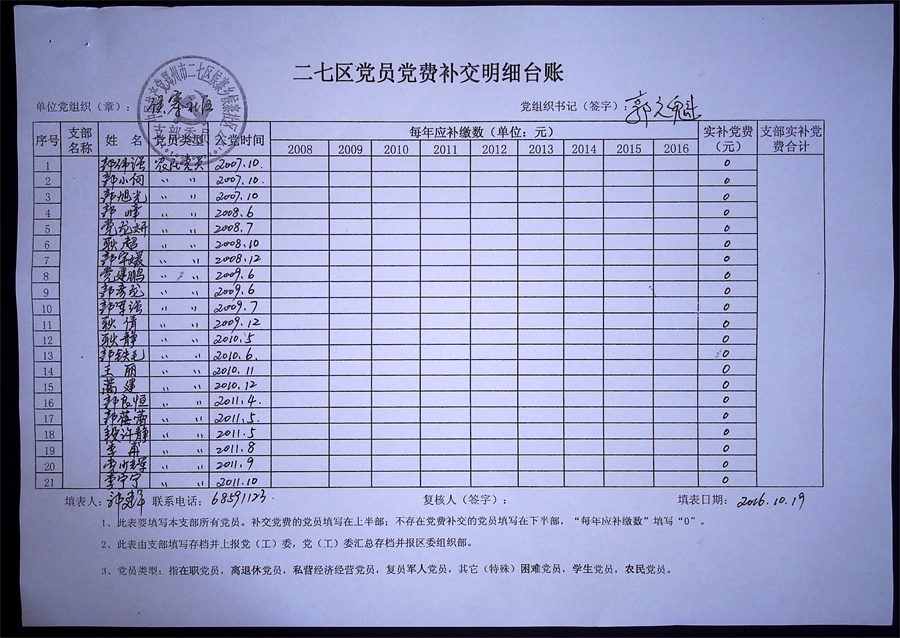 二七区党员党费补交明细台账
单位党组织（章）： 侯寨社区 党组织书记（签字）：
序号 支部名称 姓 名 党员类型 入党时间 每年应补缴数（单位：元） 实补党费（元） 支部实补党费合计
2008 2009 2010 2011 2012 2013 2014 2015 2016
1 农民党员 2007.10. 0
2 郭小伺 〃 〃 2007.10. 0
3 郭旭光 〃 〃 2007.10 0
4 郭 峰 〃 〃 2008.6 0
5 〃 〃 2008.7 0
6 耿 超 〃 〃 2008.10 0
7 〃 〃 2008.12 0
8 党建鹏 〃 〃 2009.6 0
9 〃 〃 2009.6 0
10 郭军强 〃 〃 2009.7 0
11 耿 倩 〃 〃 2009.12 0
12 耿 静 〃 〃 2010.5 0
13 郭铁毛 〃 〃 2010.6. 0
14 王 丽 〃 〃 2010.11 0
15 〃 〃 2010.12 0
16 郭良恒 〃 〃 2011.4. 0
17 〃 〃 2011.5. 0
18 段许静 〃 〃 2011.5 0
19 〃 〃 2011.8 0
20 〃 〃 2011.9 0
21 李宁宁 〃 〃 2011.10 0
填表人： 联系电话：68591123. 复核人（签字）： 填表日期： 2016.10.19
1、此表要填写本支部所有党员。补交党费的党员填写在上半部；不存在党费补交的党员填写在下半部，“每年应补缴数”填写“0”。
2、此表由支部填写存档并上报党（工）委，党（工）委汇总存档并报区委组织部。
3、党员类型：指在职党员，离退休党员，私营经济经营党员，复员军人党员，其它（特殊）困难党员，学生党员，农民党员。